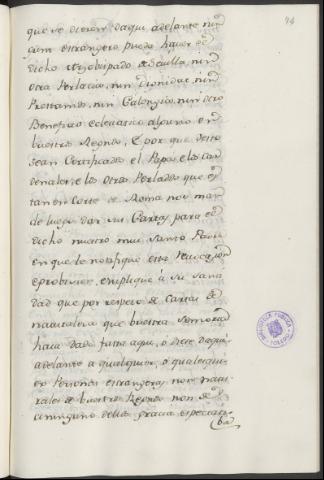 74
que se dieren daqui adelante nin
gum estrangero pueda haver el
dicho Arzobispado de Sevilla, nin
otra Perlacia, nin Dignidat, nin
Prestamos, nin Calongia, nin otro
Beneficio eclesiastico alguno en
vuestros Regnos. E por que desto
sean Certificados el Papa, e los Car
denales, e los otros Perlados que es
tan en Corte de Roma nos man
de luego dar sus Cartas para el
dicho nuestro mui Santo Padre
en que le notifique esta revocacion
e provision, e suplique á su Santi
dad que por respeto de cartas de
naturaleza que vuestra Señoria
haia dado fasta aqui, ó diere daqui
adelante a qualquier, ó qualesquie
ro Personas estrangeras non natu
rales de vuestros Regnos non dé
a ninguno dellos gracia especta
ba
BIBLIOTECA PUBLICA
TOLEDO